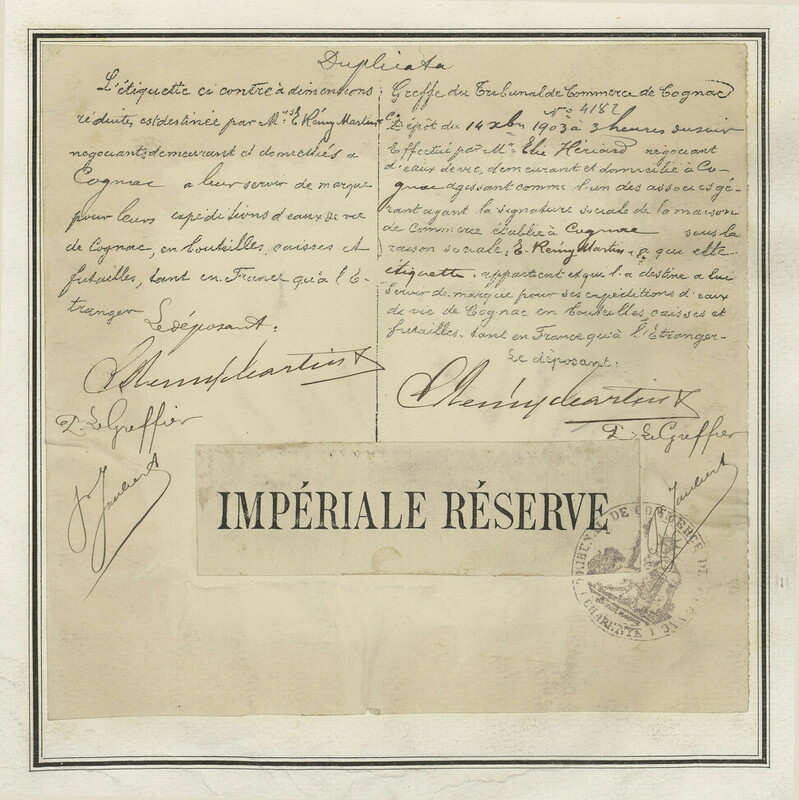 Duplicata
L'étiquette ci contre à dimensions
réduites, est destinée par Mrs E. Rémy Martin & Cie
negociants, demeurant et domiciliés a
Cognac a leur servir de marque
pour leurs expéditions d'eaux de vie
de Cognac, en bouteilles, caisses et
futailles, tant en France qu'à l'É-
tranger
Le déposant:
E. Rémy Martin &
P. Le Greffier
Joubert
Greffe du Tribunal de Commerce de Cognac
No 4182
Dépôt du 14 xbre 1903 à 3 heures du soir
Effectué par Mr Elie Hériard negociant
d'eaux de vie, demeurant et domicilié à Co-
gnac agissant comme l'un des associés gé-
rant ayant la signature sociale de la maison
de Commerce établie à Cognac sous la
raison sociale, E. Remy Martin & a qui cette
étiquette, appartient et qui l'a destine a lui
servir de marque pour ses expéditions d'eaux
de vie de Cognac en bouteilles, caisses et
futailles, tant en France qu'à l'Étranger-
Le déposant:
E. Rémy Martin &
P. Le Greffier
Joubert
IMPÉRIALE RÉSERVE
TRIBUNAL DE COMMERCE DE COGNAC
(CHARENTE)